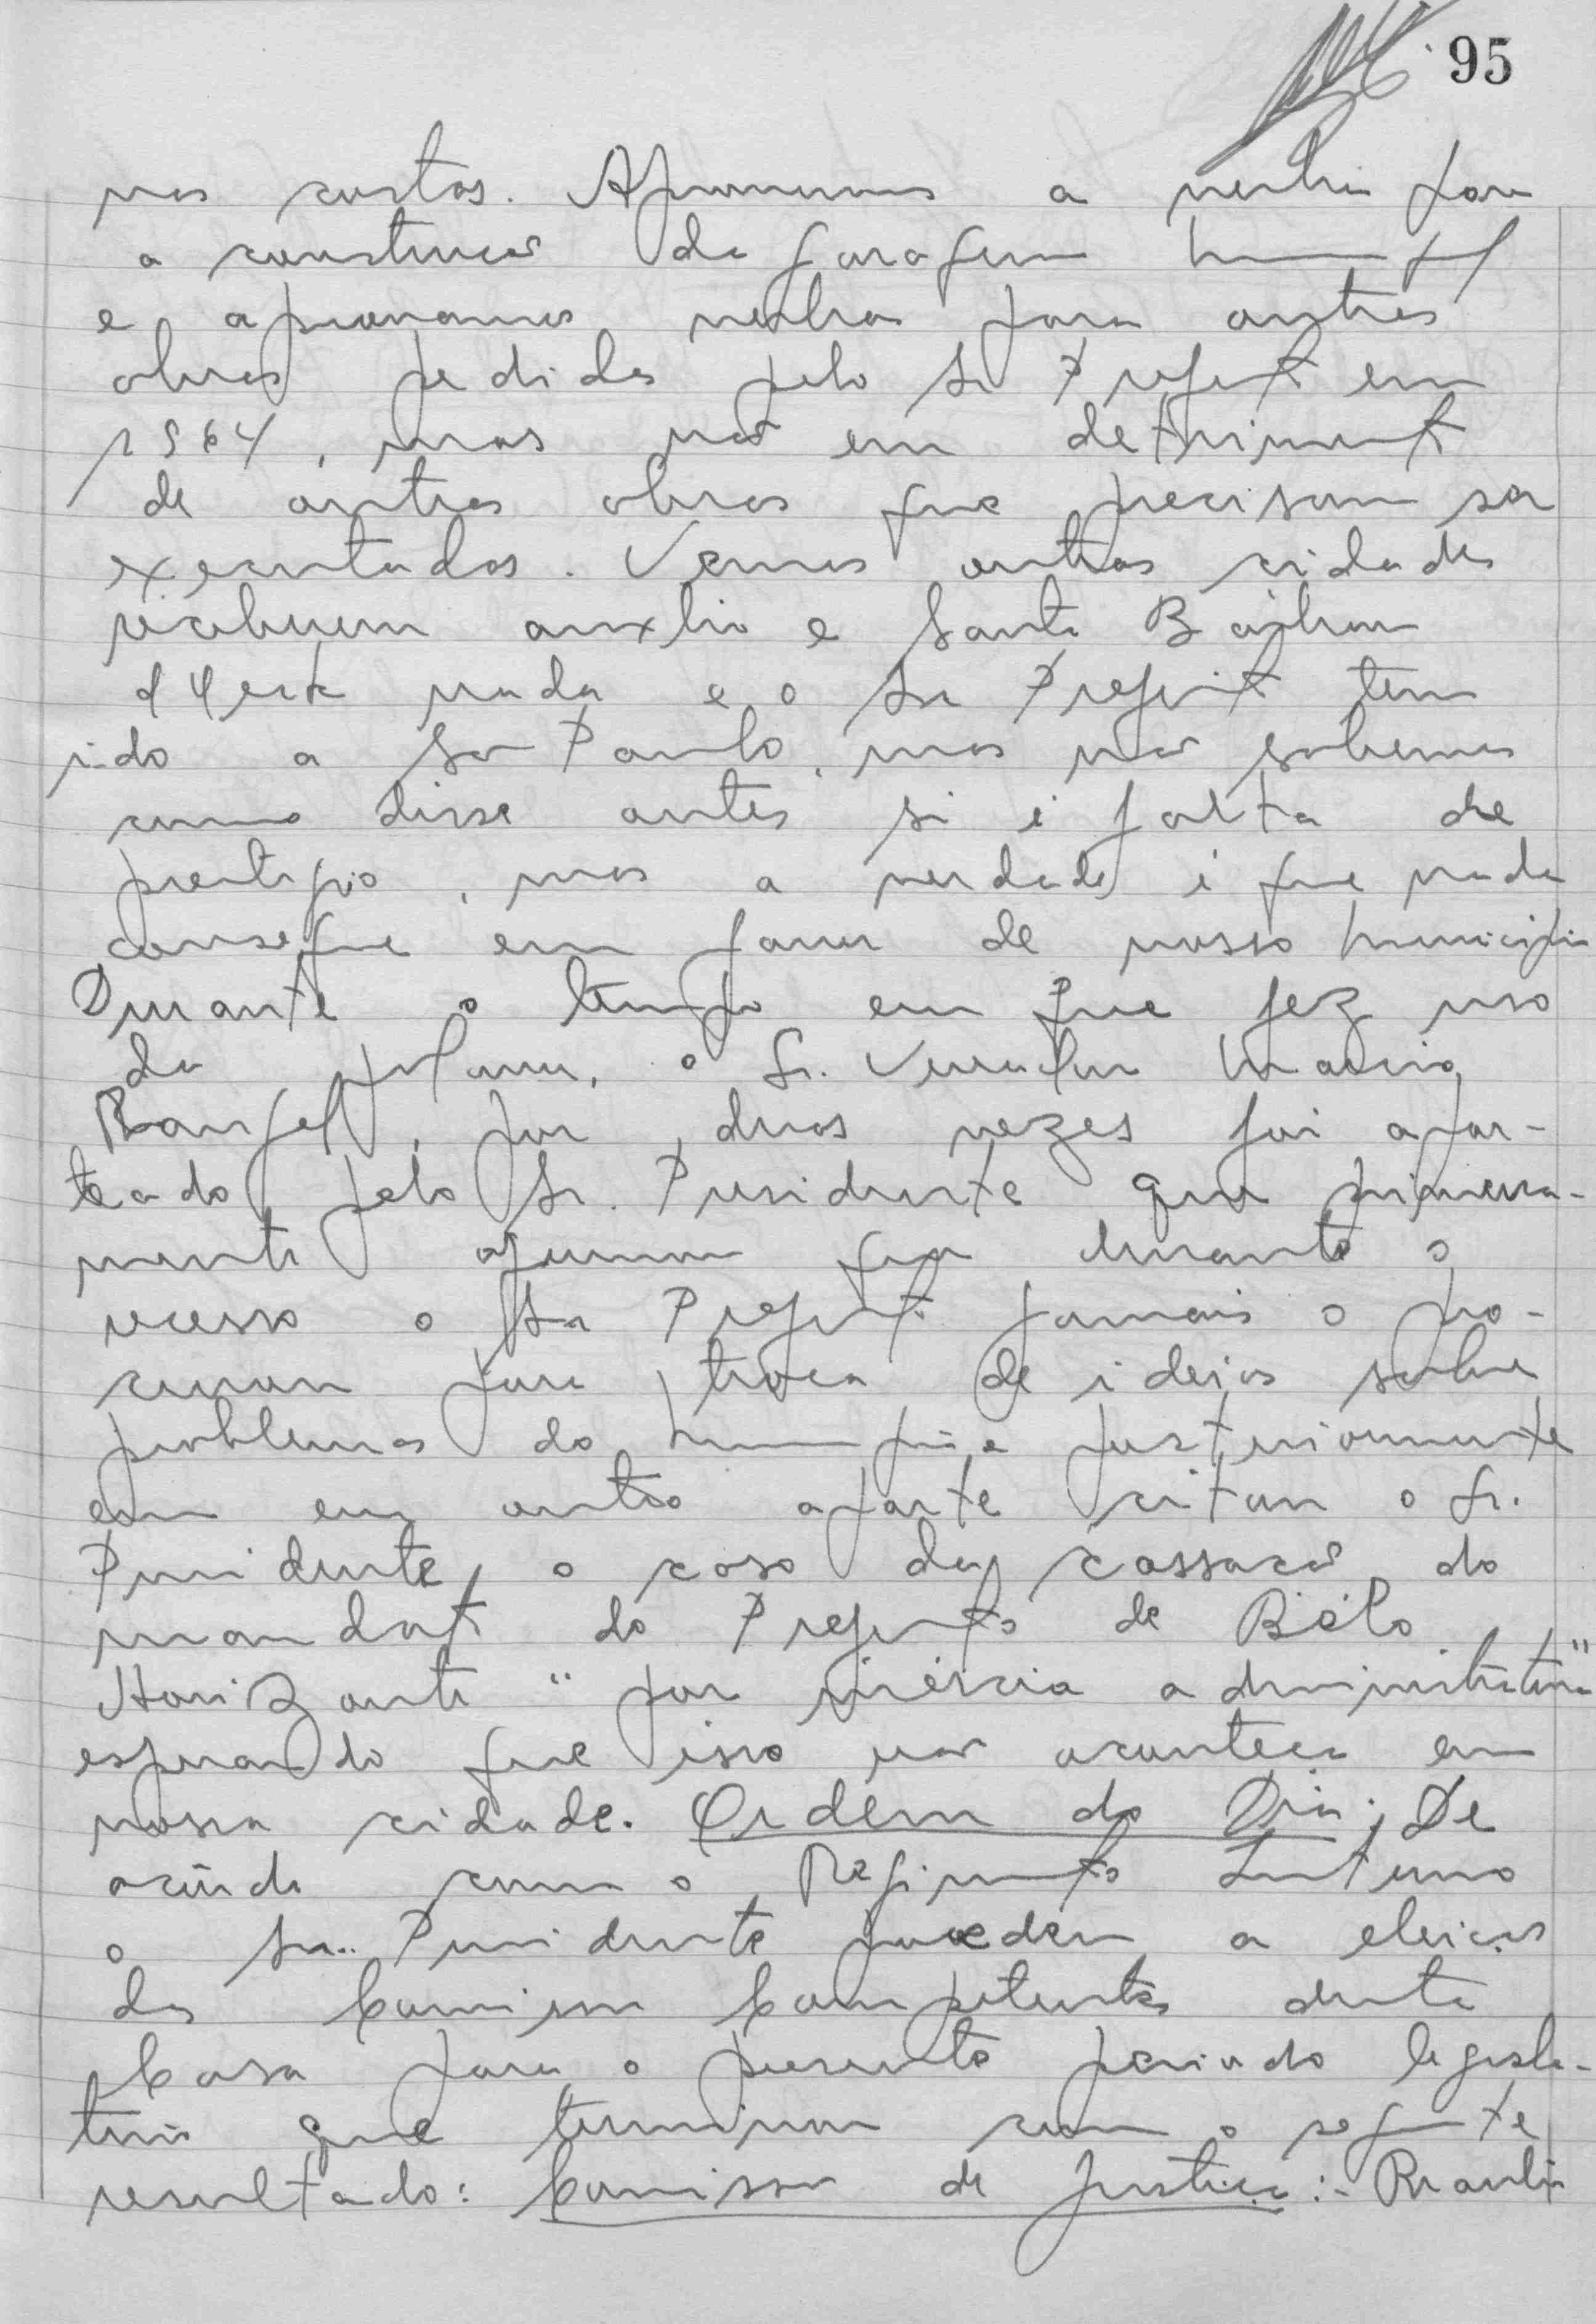 95
nos custos. Aprovamos a verba para
a construção da garagem
e aprovamos verbas para outras
obras pedidas pelo Sr Prefeito em
1964, mas não em detrimento
de outras obras que precisam ser
executadas. Vemos outras cidades
receberem auxlio e Santa Bárbara
d'Oeste nada e o Sr Prefeito tem
ido a São Paulo, mas não sabemos
como disse antes si é falta de
prestigio, mas a verdade é que nada
consegue em favor de nosso Municipio
Durante o tempo em que fez uso
da palavra, o Sr. Vereador Mario
Rangel, por duas vezes foi apar-
teado pelo Sr. Presidente que primeira-
mente afirmou que durante o
recesso o Sr Prefeito jamais o pro-
curou para troca de ideias sobre
problemas do Municipio e posteriormente
em outro aparte citou o Sr.
Presidente, o caso da cassação do
mandato do Prefeito de Bélo
Horizonte "por inércia administrativa"
esperando que isso não aconteça em
nossa cidade. Ordem do Dia: De
acôrdo com o Regimento Interno
o Sr. Presidente procedeu a eleição
das Comissões Competentes desta
Casa para o presente periodo legisla-
tivo que terminou com o seguinte
resultado: Comissão de Justiça:- Braulio